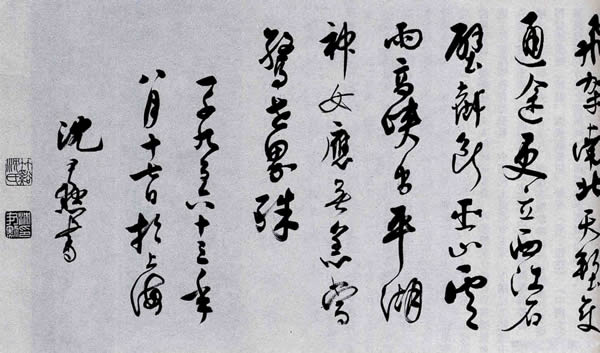 飛架南北天塹變
通途更立西江石
壁截斷巫山雲
雨高峽出平湖
神女應無恙當
驚世界殊
一千九百六十三年
八月十七日於上海
沈尹默書
竹谿沈氏